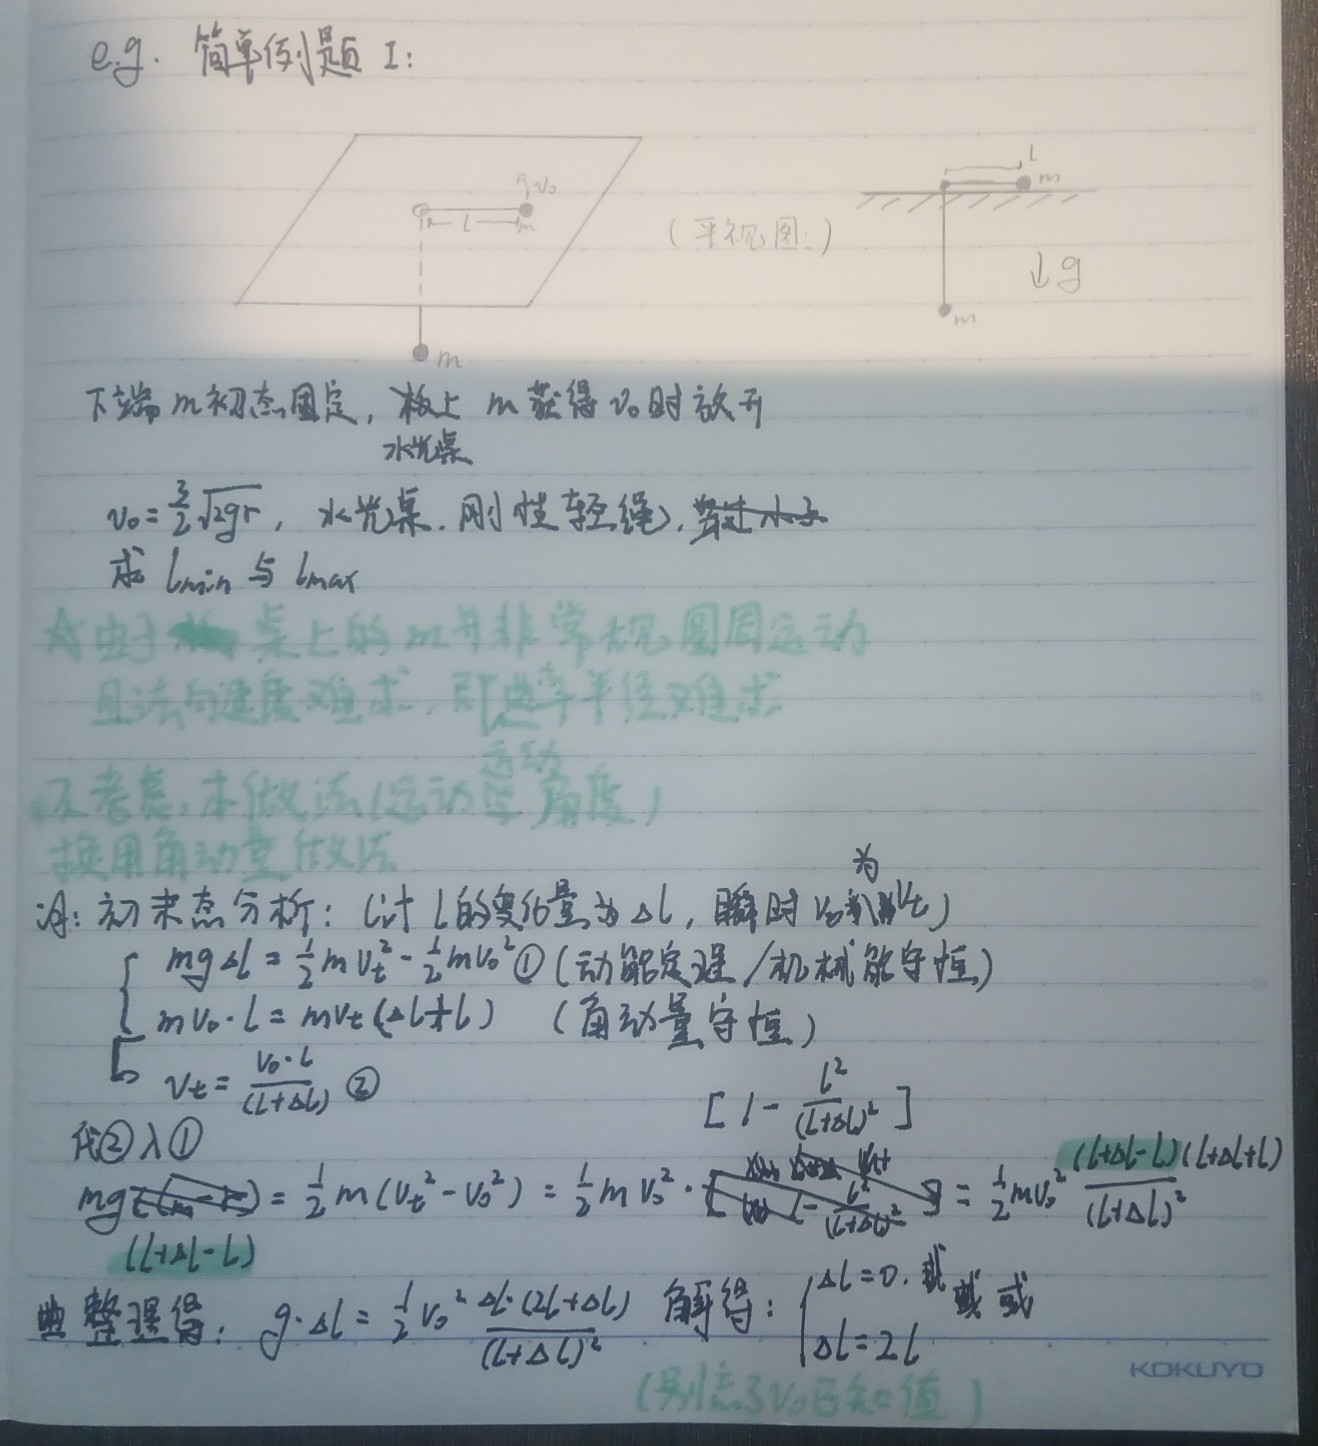 e.g. 简单例题 I:
v₀
l
m
m
(平视图:)
l
m
m
↓g
下端 m 初态固定, 板上 m 获得 v₀ 时放开
水光桌
v₀ = 3/2 √2gr, 水光桌. 刚性轻绳,
求 lmin 与 lmax
☆由于 桌上的 m 并非常规圆周运动
且法向速度难求, 即曲率半径难求
不考虑. 本做法(运动学角度)
运动
换用角动量做法
初末态分析: (计 l 的变化量为 Δl, 瞬时 v₀ 为 vt)
mgΔl = 1/2 mvt² - 1/2 mv₀² ① (动能定理/机械能守恒)
mv₀·l = mvt(Δl+l) (角动量守恒)
vt = v₀·l/(l+Δl) ②
代②入①
[1 - l²/(l+Δl)²]
mg = 1/2 m(vt² - v₀²) = 1/2 mv₀² · = 1/2 mv₀² (l+Δl-l)(l+Δl+l)/(l+Δl)²
(l+Δl-l)
整理得: g·Δl = 1/2 v₀² Δl·(2l+Δl)/(l+Δl)² 解得: { Δl=0. 或
Δl=2l
(别忘了v₀已知值)
KOKUYO